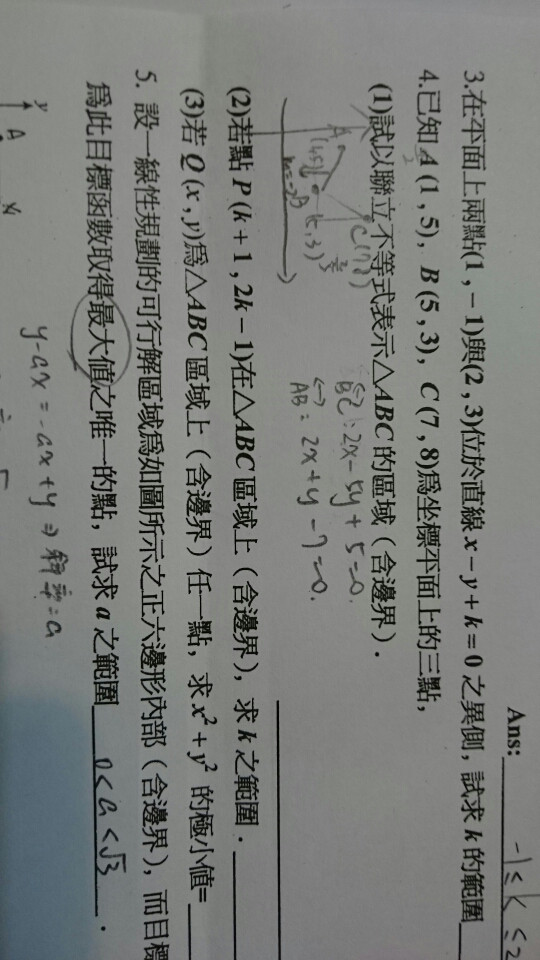 Ans: -1≤k≤2
3.在平面上兩點(1,-1)與(2,3)位於直線 x-y+k=0 之異側,試求 k 的範圍
4.已知 A(1,5), B(5,3), C(7,8)為坐標平面上的三點,
(1)試以聯立不等式表示△ABC的區域(含邊界).
BC: 2x-5y+5=0.
AB: 2x+y-7=0.
A(1,5)
C(7,8)
(2)若點 P(k+1,2k-1)在△ABC區域上(含邊界),求 k 之範圍.
(3)若 Q(x,y)為△ABC區域上(含邊界)任一點,求 x²+y² 的極小值=
5. 設一線性規劃的可行解區域為如圖所示之正六邊形內部(含邊界),而目標
為此目標函數取得最大值之唯一的點,試求 a 之範圍 0<a<√3 .
y-ax=-ax+y⇒斜率=a
y
A